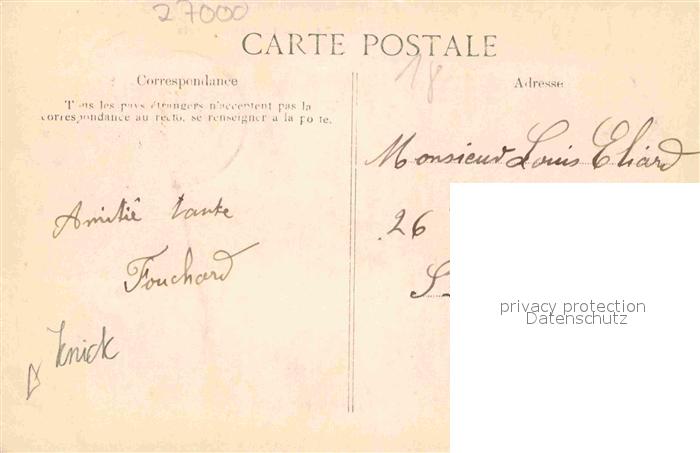 27000
CARTE POSTALE
18
Correspondance
Tous les pays étrangers n'acceptent pas la
correspondance au recto, se renseigner à la poste.
Adresse
Monsieur Louis Eliard
26
Amitié tante
Fouchard
Knick
privacy protection
Datenschutz